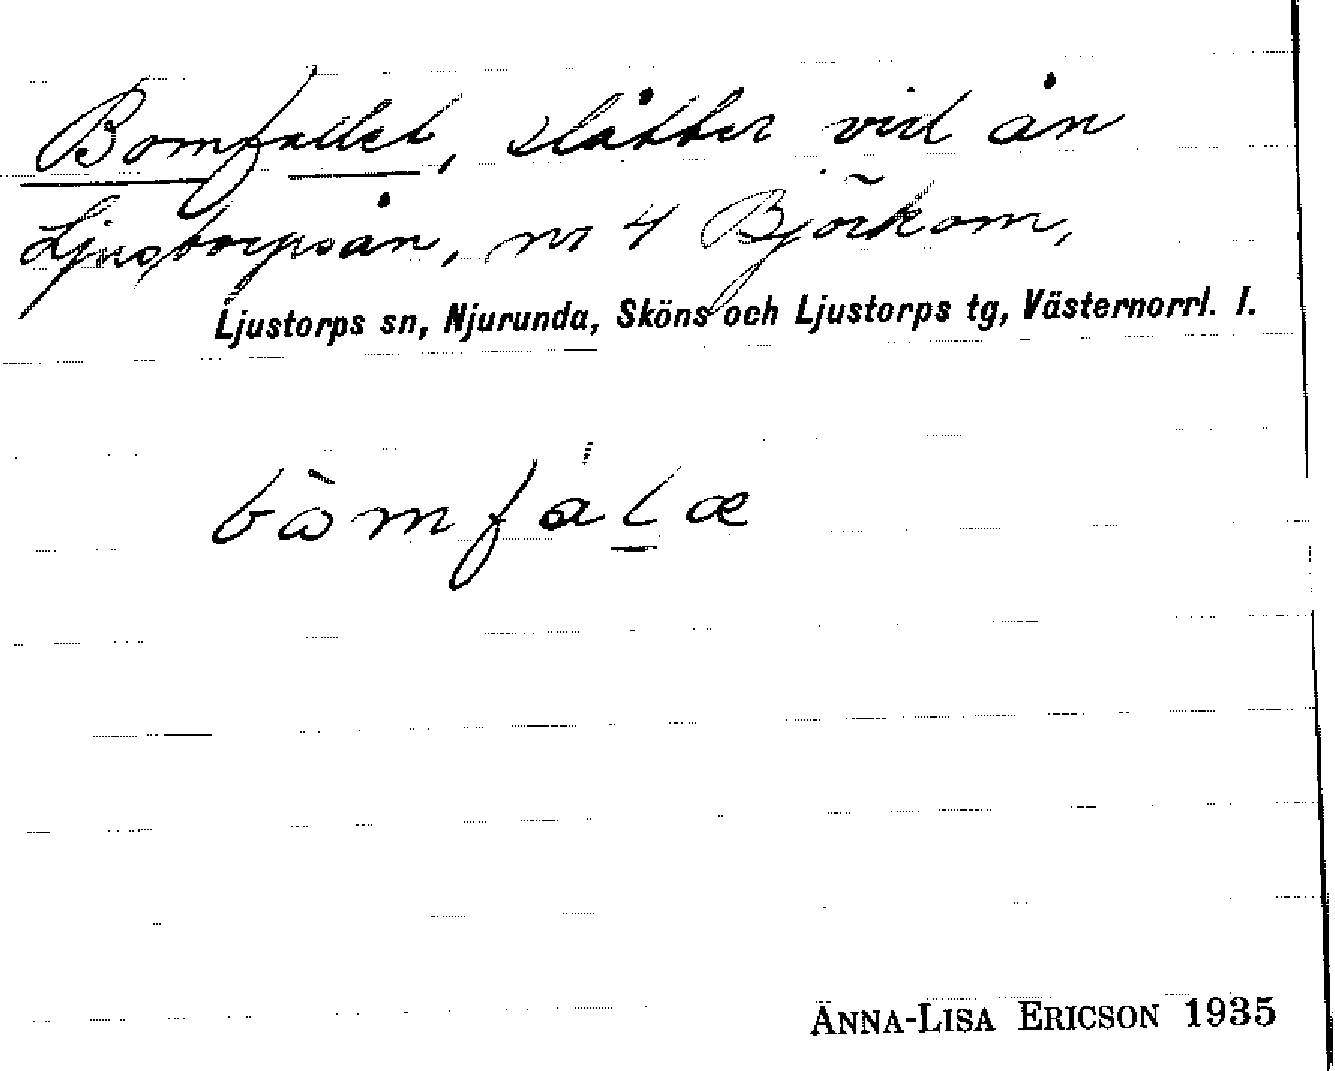 Bomfallet, slåtter vid ån
Ljustorpsån, nr 4 Björkom,
Ljustorps sn, Njurunda, Sköns och Ljustorps tg, Västernorrl. l.
bòmfálæ
ANNA-LISA ERICSON 1935